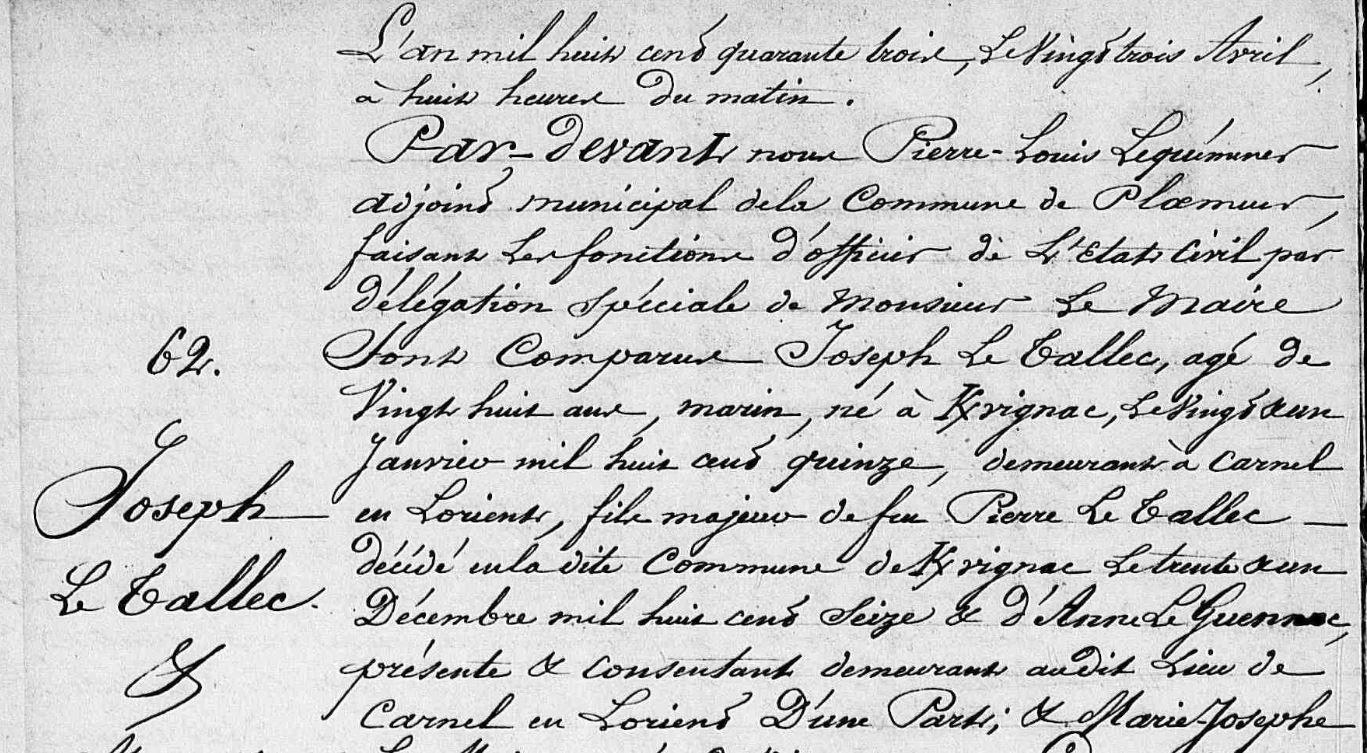 L'an mil huit cent quarante trois, Le Vingt trois Avril,
à huit heures du matin.
Par-devant nous Pierre-Louis Lequémener
adjoint municipal de la Commune de Ploemeur,
faisant Les fonctions d'officier de L'Etat Civil par
délégation spéciale de Monsieur Le Maire
Sont Comparus Joseph Le Tallec, agé de
62.
Vingt huit ans, marin, né à Kvignac, Le Vingt & un
Janvier mil huit cent quinze, demeurant à Carnel
Joseph
en Lorient, fils majeur de feu Pierre Le Tallec
décédé en la dite Commune de Kvignac Le trente & un
Le Tallec.
Décembre mil huit cent Seize & d'Anne Le Guennec,
&
présente & consentant demeurant audit Lieu de
Carnel en Lorient D'une Part; & Marie-Josephe